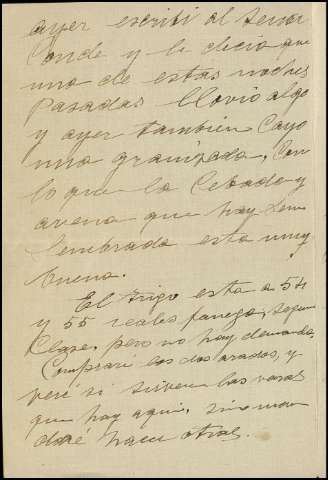 ayer escribi al Señor
Conde y le decia que
una de estas noches
Pasadas llovio algo
y ayer tambien Cayo
una granizada, Con
lo que la Cebada y
avena que hay
Sembrada esta muy
buena.
El trigo esta a 54
y 55 reales fanega, segun
Clase, pero no hay demanda,
Compraré los dos arados, y
veré si sirven las varas
que hay aqui, sino man
daré hacer otras.